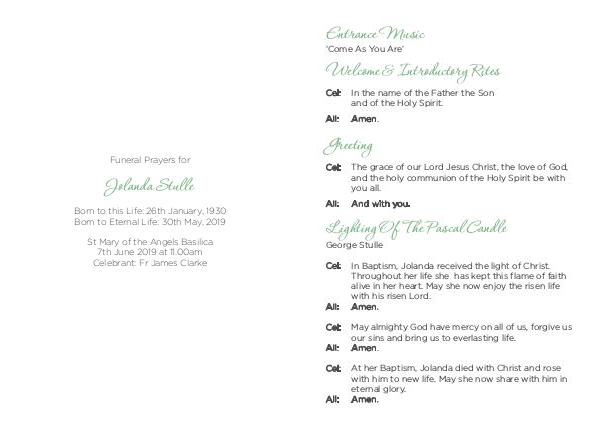 Funeral Prayers for
Jolanda Stulle
Born to this Life: 26th January, 1930
Born to Eternal Life: 30th May, 2019
St Mary of the Angels Basilica
7th June 2019 at 11.00am
Celebrant: Fr James Clarke
Entrance Music
'Come As You Are'
Welcome & Introductory Rites
Cel: In the name of the Father the Son
and of the Holy Spirit.
All: Amen.
Greeting
Cel: The grace of our Lord Jesus Christ, the love of God,
and the holy communion of the Holy Spirit be with
you all.
All: And with you.
Lighting Of The Pascal Candle
George Stulle
Cel: In Baptism, Jolanda received the light of Christ.
Throughout her life she has kept this flame of faith
alive in her heart. May she now enjoy the risen life
with his risen Lord.
All: Amen.
Cel: May almighty God have mercy on all of us, forgive us
our sins and bring us to everlasting life.
All: Amen.
Cel: At her Baptism, Jolanda died with Christ and rose
with him to new life. May she now share with him in
eternal glory.
All: Amen.